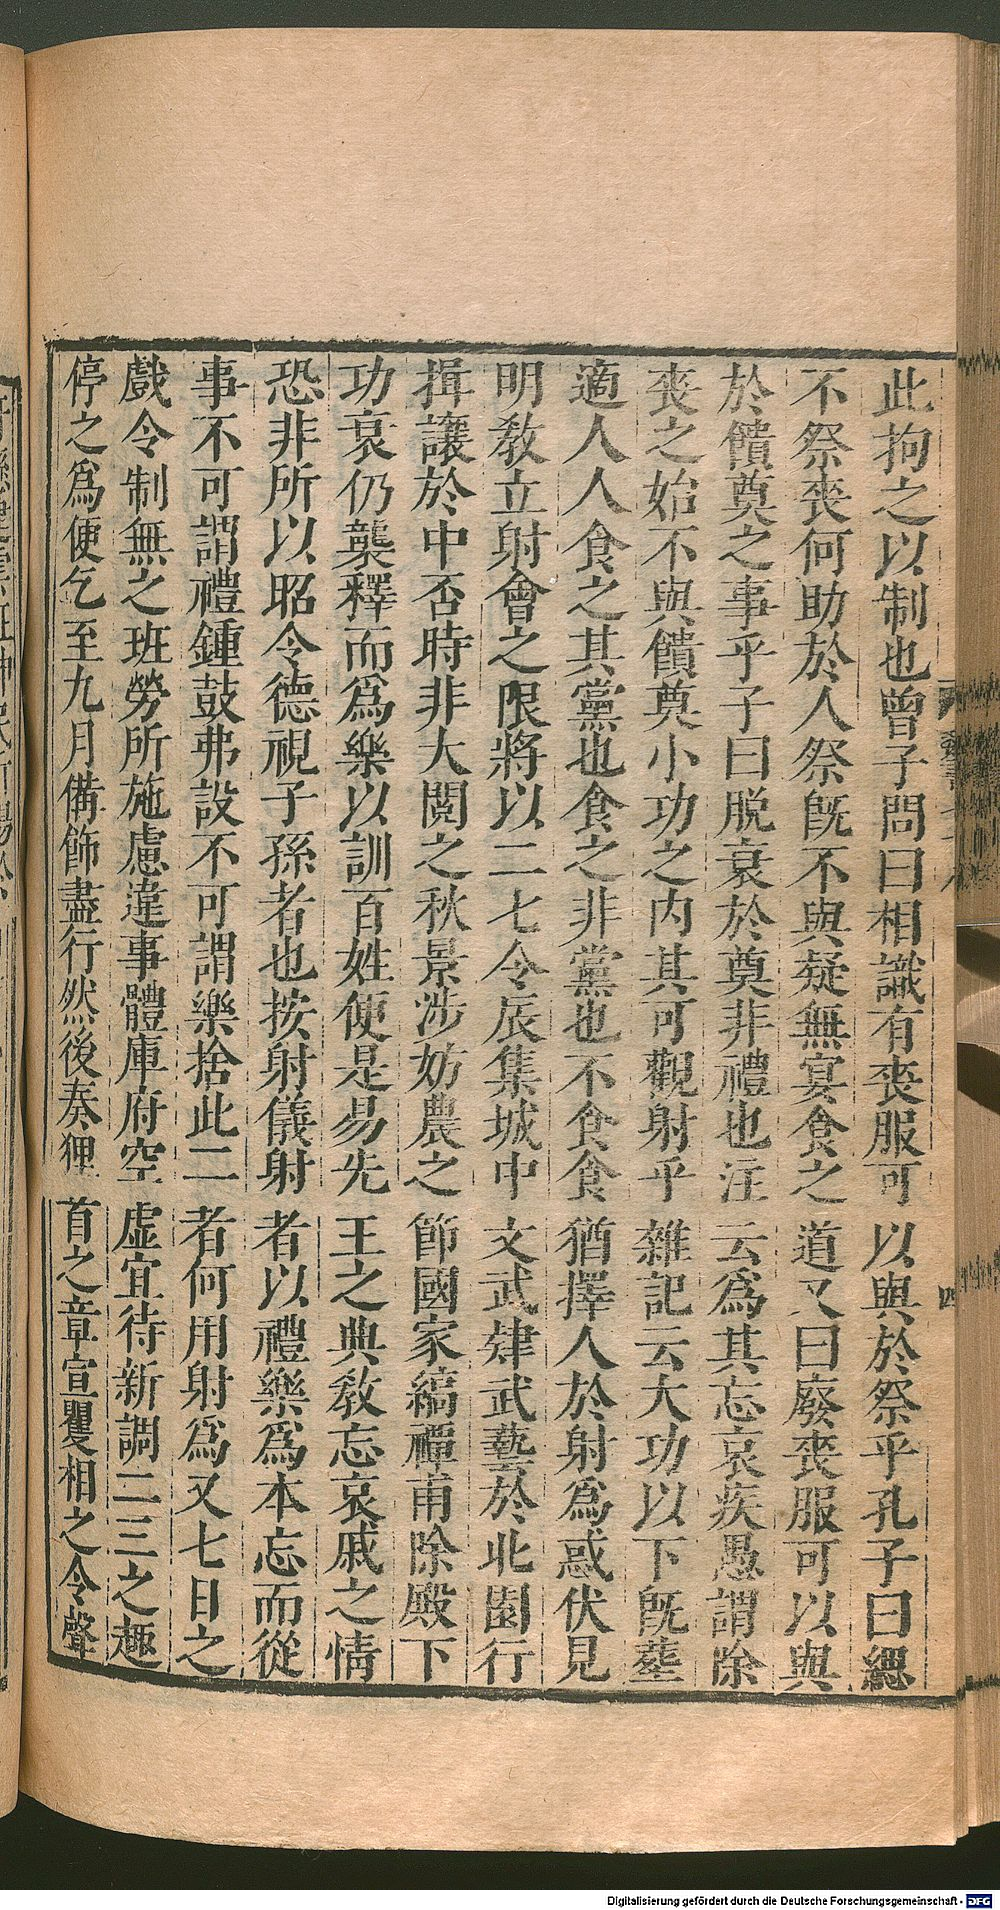 此拘之以制也曾子問曰相識有喪服可以與於祭乎孔子曰緦
不祭喪何助於人祭旣不與疑無宴食之道又曰廢喪服可以與
於饋奠之事乎子曰脫衰於奠非禮也注云爲其忘哀疾愚謂除
喪之始不與饋奠小功之內其可觀射乎雜記云大功以下旣葬
適人人食之其黨也食之非黨也不食食猶擇人於射爲惑伏見
明敎立射會之限將以二七令辰集城中文武肄武藝於北園行
揖讓於中否時非大閱之秋景涉妨農之節國家縞禫甫除殿下
功衰仍襲釋而爲樂以訓百姓便是易先王之典敎忘哀戚之情
恐非所以昭令德視子孫者也按射儀射者以禮樂爲本忘而從
事不可謂禮鍾鼓弗設不可謂樂捨此二者何用射爲又七日之
戲令制無之班勞所施慮違事體庫府空虛宜待新調二三之趣
停之爲便乞至九月備飾盡行然後奏狸首之章宣矍相之令聲
四
Digitalisierung gefördert durch die Deutsche Forschungsgemeinschaft - DFG